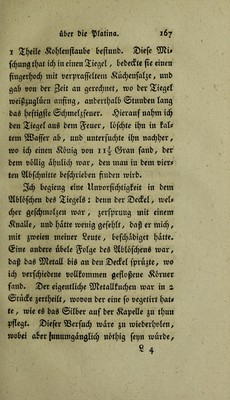 über die Platina. 167
1 Theile Kohlenstaube bestund. Diese Mi-
schung that ich in einen Tiegel, bedeckte sie einen
fingerhoch mit verprasseltem Küchensalze, und
gab von der Zeit an gerechnet, wo der Tiegel
weißzuglüen anfing, anderthalb Stunden lang
das heftigste Schmelzfeuer. Hierauf nahm ich
den Tiegel aus dem Feuer, löschte ihn in kal-
tem Wasser ab, und untersuchte ihn nachher,
wo ich einen König von 11½ Gran fand, der
dem völlig ähnlich war, den man in dem vier-
ten Abschnitte beschrieben finden wird.
Ich begieng eine Unvorsichtigkeit in dem
Ablöschen des Tiegels: denn der Deckel, wel-
cher geschmolzen war, zersprung mit einem
Knalle, und hätte wenig gefehlt, daß er mich,
mit zweien meiner Leute, beschädiget hätte.
Eine andere übele Folge des Ablöschens war,
daß das Metall bis an den Deckel sprüzte, wo
ich verschiedene vollkommen gefloßene Körner
fand. Der eigentliche Metallkuchen war in 2
Stücke zertheilt, wovon der eine so vegetirt hat-
te, wie es das Silber auf der Kapelle zu thun
pflegt. Dieser Versuch wäre zu wiederholen,
wobei aber unumgänglich nöthig seyn würde,
L 4